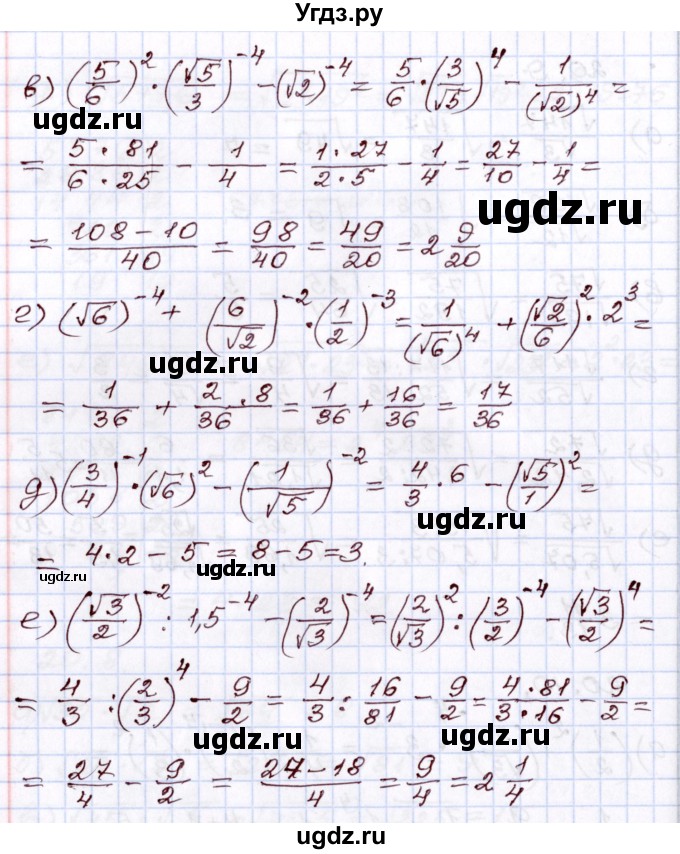 Угдз.ру
в) (5/6)² · (√5/3)⁻⁴ − (√2)⁻⁴ = 5/6 · (3/√5)⁴ − 1/(√2)⁴ =
ugdz.ru
= 5·81/6·25 − 1/4 = 1·27/2·5 − 1/4 = 27/10 − 1/4 =
ugdz.ru
ugdz.ru
= 108−10/40 = 98/40 = 49/20 = 2 9/20
г) (√6)⁻⁴ + (6/√2)⁻² · (1/2)⁻³ = 1/(√6)⁴ + (√2/6)² · 2³ =
ugdz.ru
= 1/36 + 2/36 · 8 = 1/36 + 16/36 = 17/36
д) (3/4)⁻¹ · (√6)² − (1/√5)⁻² = 4/3 · 6 − (√5/1)² =
ugdz.ru
= 4·2 − 5 = 8−5 = 3.
ugdz.ru
ugdz.ru
е) (√3/2)⁻² : 1,5⁻⁴ − (2/√3)⁻⁴ = (2/√3)² : (3/2)⁻⁴ − (√3/2)⁴ =
= 4/3 : (2/3)⁴ − 9/2 = 4/3 : 16/81 − 9/2 = 4·81/3·16 − 9/2 =
ugdz.ru
ugdz.ru
= 27/4 − 9/2 = 27−18/4 = 9/4 = 2 1/4
ugdz.ru
ugdz.ru